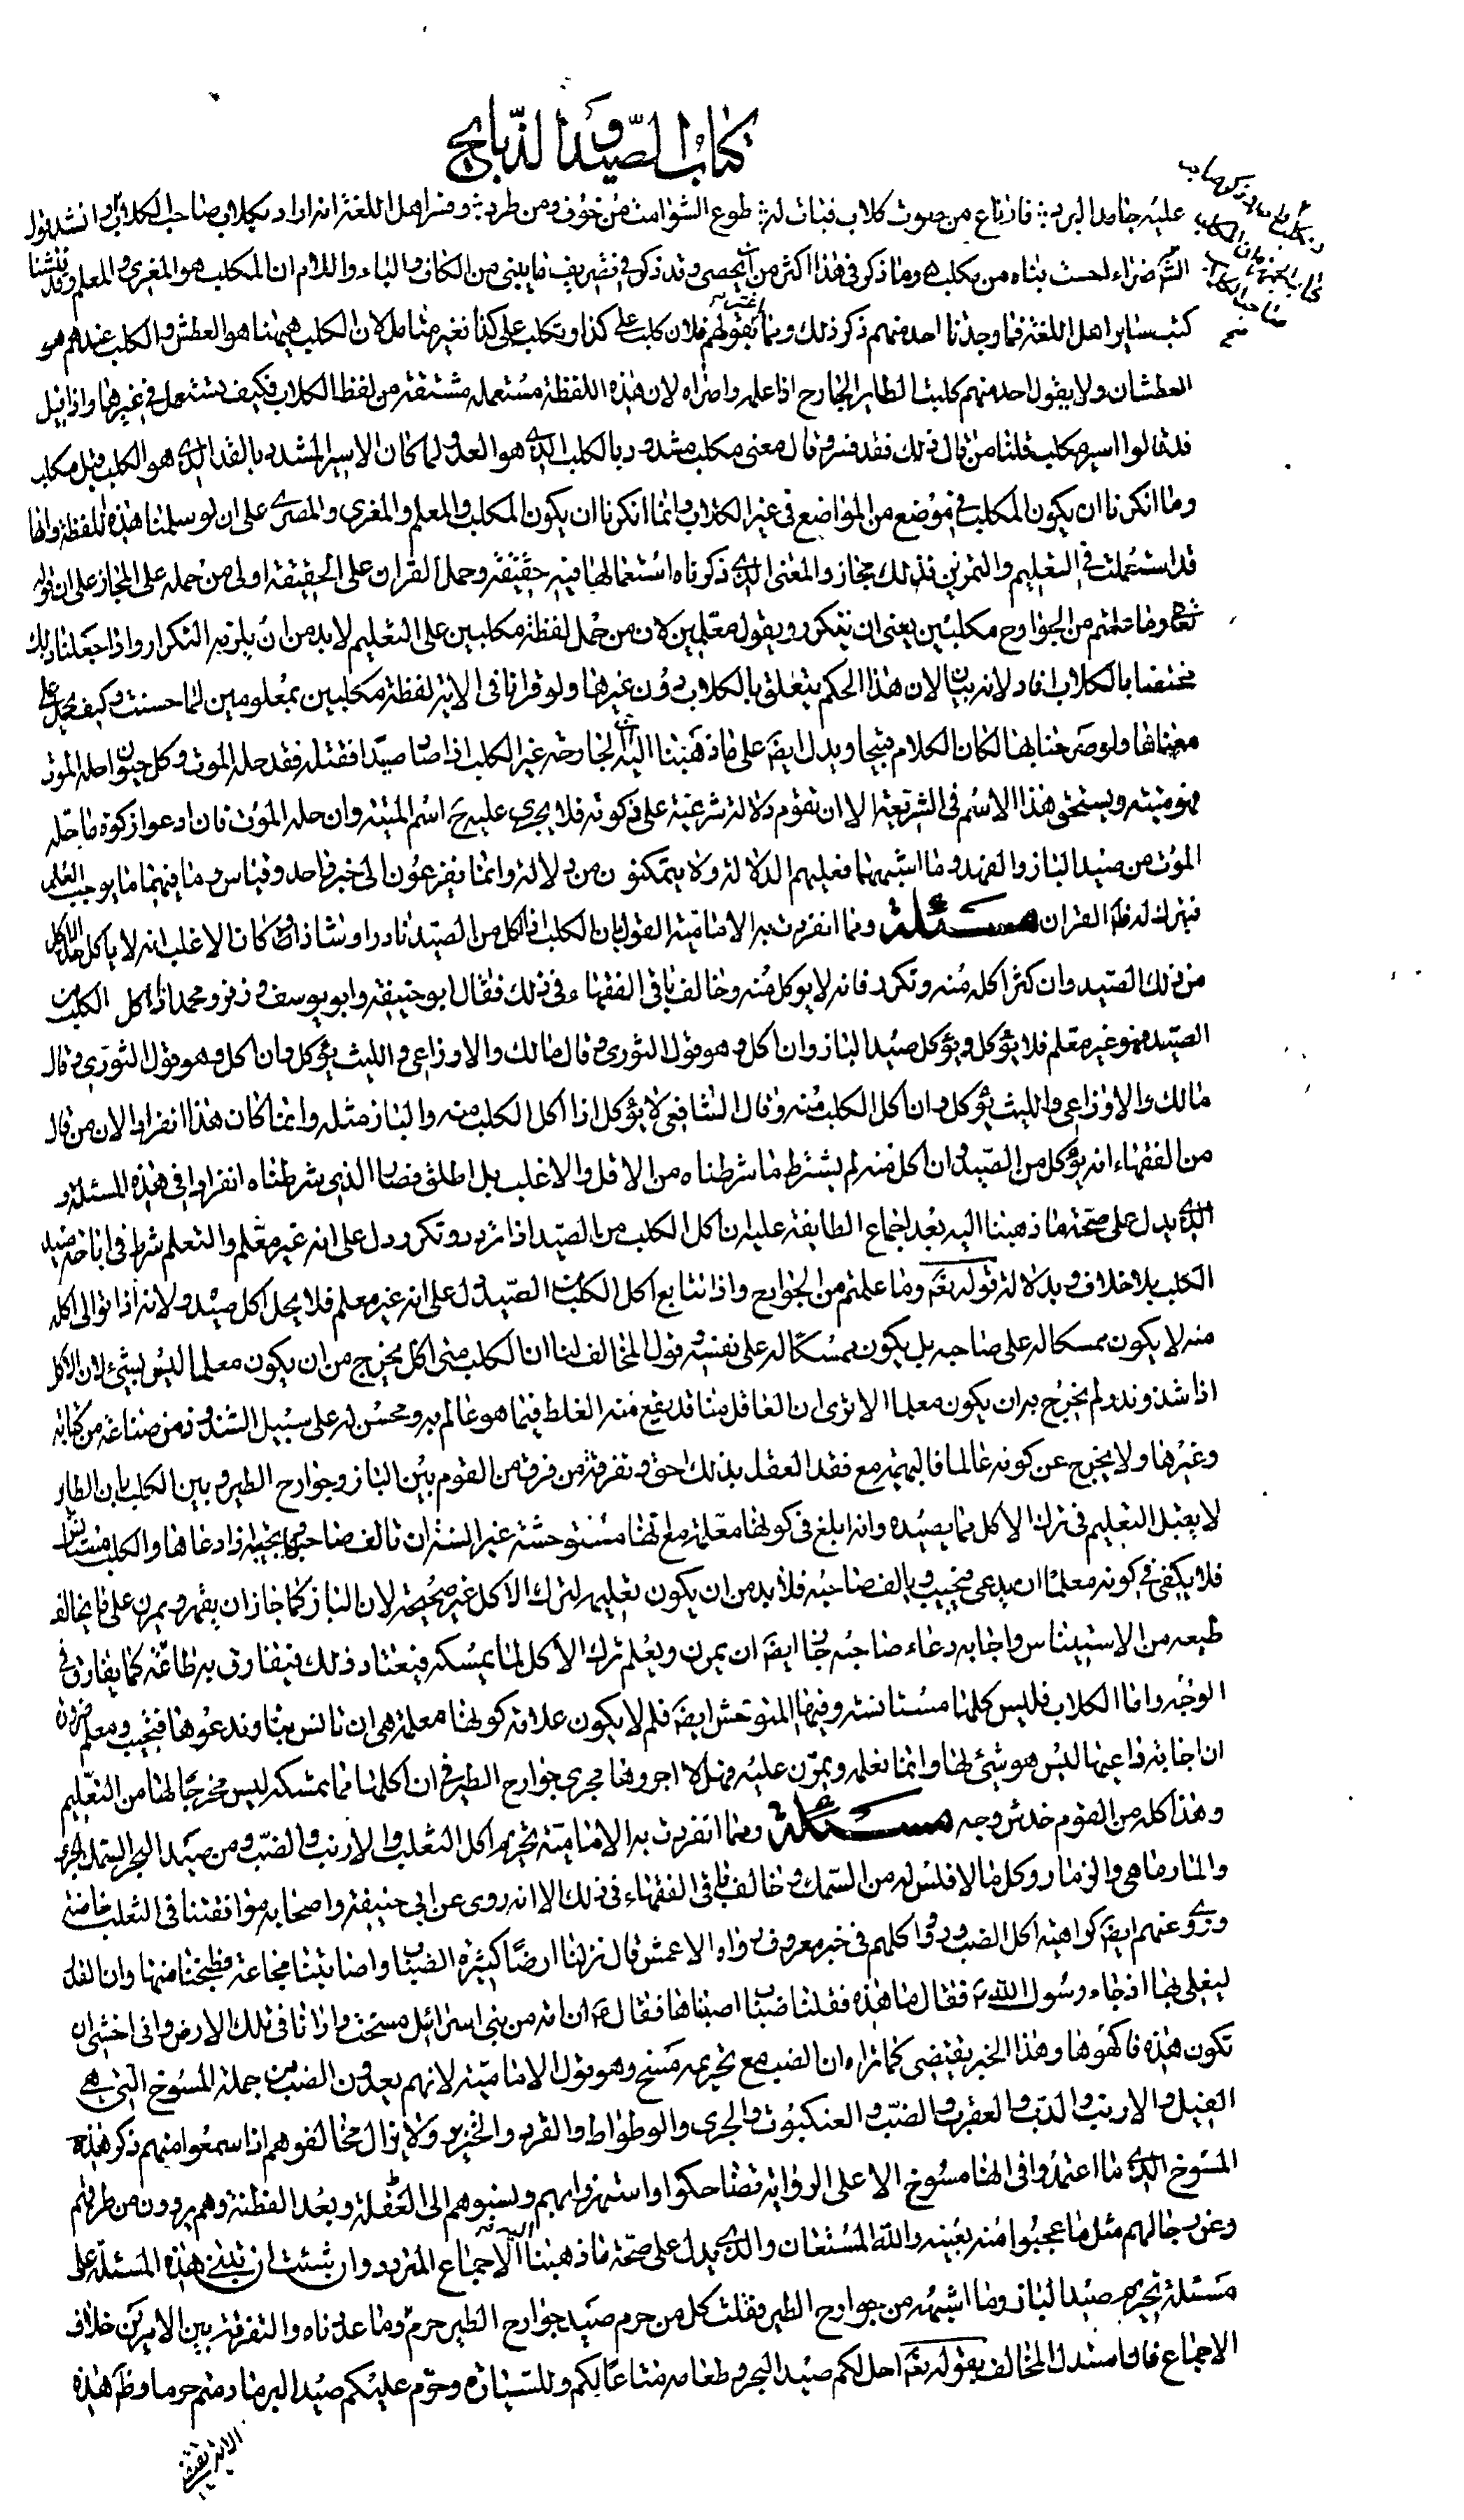 كتاب الصّيد والذّبايح
عليه جامد البرد ؛ فارتاع من صوت كلاب فبات له ؛ طوع الشوامت من خوف ومن طرد ؛ وفسر اهل اللغة انه اراد بكلاب صاحب الكلاب وانشد قول
الشَّ ضراء احست بناه من مكلب وما ذكر في هذا اكثر من ان يحصى وقد ذكر في تصريف ما يبنى من الكاف والباء واللام ان المكلب هو المغرى والمعلم وقد فتشنا
كتب ساير اهل اللغة فما وجدنا احد منهم ذكر ذلك وما يقولهم فلان كلب على كذا وتكلب على كذا فغير متامل لان الكلب هيهنا هو العطش والكلب عندهم هو
العطشان ولا يقول احد منهم كلبت الطاير الجارح اذا علمه واضراه لان هذه اللفظة مستعملة مشتقة من لفظ الكلاب فكيف يستعمل في غيرها واذا قيل
قد قالوا اسير مكلب قلنا من قال ذلك فقد فسره وقال معنى مكلب مشدود بالكلب الذى هو القد ولما كان الاسير المشدد بالقد الذى هو الكلب قيل مكلب
وما انكرنا ان يكون المكلب في موضع من المواضع في غير الكلاب وانما انكرنا ان يكون المكلب والمعلم والمغرى والمضرى على ان لو سلمنا هذه اللفظة وانها
قد استعملت في التعليم والتمرين فذلك مجاز والمعنى الذى ذكرناه استعمالها فيه حقيقة وحمل القران على الحقيقة اولى من حمله على المجاز على ان قوله
تعالى وما علمتم من الجوارح مكلبين يعنى ان يتكرر ويقول معلمين لان من حمل لفظة مكلبين على التعليم لا بد من ان يلزمه التكرار واذا جعلنا ذلك
مختصا بالكلاب افاد لانه بيان لان هذا الحكم يتعلق بالكلاب دون غيرها ولو قرانا في الاية لفظة مكلبين بمعلومين لما حسنت وكيف يحمل على
معناها ولو صرحنا بها لكان الكلام قبيحا ويدل ايضَ على ما ذهبنا اليه ان الجارحة غير الكلب اذا صاد صيدا فقتله فقد حله الموت وكل حيوان حله الموت
فهو ميتة ويستحق هذا الاسم في الشريعة الا ان تقوم دلالة شرعية على ذكوته فلا يجرى عليه حَ اسم الميتة وان حله الموت فان ادعوا ذكوة ما حله
الموت من صيد الباز والفهد وما اشبههما فعليهم الدلالة ولا يتمكنون من دلالة وانما يفزعون الى خبر واحد وقياس وما فيهما ما يوجب العلم
فيترك له ظَ القران مسئلة ومما انفردت به الامامية القول بان الكلب اذا اكل من الصيد نادرا وشاذا وكان الاغلب انه لا ياكل حل الاكل
من ذلك الصيد وان كثر اكله منه وتكرر فانه لا يوكل منه وخالف باقى الفقهاء في ذلك فقال ابو حنيفه وابو يوسف وزفر ومحمد اذا اكل الكلب من
الصيد فهو غير معلم فلا يؤكل ويؤكل صيد الباز وان اكل وهو قول الثورى وقال مالك والاوزاعى والليث يؤكل وان اكل وهو قول الثورى وقال
مالك والاوزاعى والليث يؤكل وان اكل الكلب منه وقال الشافعى لا يؤكل اذا اكل الكلب منه والباز مثله وانما كان هذا انفرادا لان من قال
من الفقهاء انه يؤكل من الصيد وان اكل منه لم يشترط ما شرطناه من الاقل والاغلب بل اطلق فصار الذى شرطناه انفرادا في هذه المسئلة و
الذى يدل على صحة ما ذهبنا اليه بعد اجماع الطايفة عليه ان اكل الكلب من الصيد اذا تردد وتكرر دل على انه غير معلم والتعلم شرط في اباحة صيد
الكلب بلا خلاف وبدلالة قوله تعَ وما علمتم من الجوارح واذا تتابع اكل الكلب من الصيد دل على انه غير معلم فلا يحل اكل صيده ولانه اذا توالى اكله
منه لا يكون ممسكا له على صاحبه بل يكون ممسكا له على نفسه وقول المخالف لنا ان الكلب متى اكل يخرج من ان يكون معلما ليس بشئ لان الاكل
اذا شذ وندر لم يخرج به ان يكون معلما الا ترى ان العاقل منا قد يقع منه الغلط فيما هو عالم به ومحسن له على سبيل الشذوذ من صناعة من كتابة
وغيرها ولا يخرج عن كونه عالما فالبهيمة مع فقد العقل بذلك احق وتفرقة من فرق من القوم بين الباز وجوارح الطير وبين الكلب بان الطاير
لا يقبل التعليم في ترك الاكل مما يصيده وانه ابلغ في كونها معلمة مع انها مستوحشة غير انسة ان تالف صاحبها وتجيبه اذا دعاها والكلب مستانس
فلا يكفى في كونه معلما ان يدعى فيجيب ويالف صاحبه فلا بد من ان يكون تعليمه لترك الاكل غير صحيحة لان الباز كما جاز ان يقهر ويمرن على ما يخالف
طبعه من الاستيناس واجابة دعاء صاحبه جاز ايضَ ان يمرن ويعلم ترك الاكل لما يمسكه فيعتاد ذلك فيفارق به طباعه كما يفارق في
الوجه واما الكلاب فليس كلها مستانسة وفيها المتوحش ايضَ فلم لا يكون علامة كونها معلمة هى ان تانس بنا وندعوها فتجيب ومعلم ضرورة
ان اجابة داعيها ليس هو شئ لها وانما تعلمه وتمرن عليه فهلا اجروها مجرى جوارح الطير في ان اكلها مما تمسكه ليس مخرجا لها من التعليم
وهذا كله من القوم خدش وجه مسئلة ومما انفردت به الامامية تحريم اكل الثعلب والارنب والضب ومن صيد البحر السمك الجرى
والمارماهى والزمار وكل ما لا فلس له من السمك وخالف باقى الفقهاء في ذلك الا انه روى عن ابى حنيفه واصحابه موافقتنا في الثعلب خاصة
وروى عنهم ايضَ كراهية اكل الضب وروواكلهم في خبر معروف رواه الاعمش قال نزلنا ارضا كثيرة الضباب واصابتنا مجاعة فطبخنا منها وان القدر
ليغلى بها اذ جاء رسول اللّه ص فقال ما هذه فقلنا ضباب اصبناها فقال عَ ان امة من بنى اسرائل مسخت وارانا في تلك الارض وانى اخشى ان
تكون هذه فاكهوها وهذا الخبر يقتضى كما تراه ان الضب مع تحريمه مسخ وهو قول الامامية لانهم يعدون الضب من جملة المسوخ التى هى
الفيل والارنب والدب والعقرب والضب والعنكبوت والجرى والوطواط والقرد والخنزير ولا يزال مخالفوهم اذا سمعوا منهم ذكر هذه
المسوخ الذى ما اعتمدوا في انها مسوخ الا على الرواية تضاحكوا واستهزوا بهم ونسبوهم الى الغفلة وبعد الفطنة وهم يروون من طرقهم
وعن رجالهم مثل ما عجبوا منه بعينه واللّه المستعان والذى يدل على صحة ما ذهبنا اليه الاجماع المتردد وان شئت ان تبنى هذه المسئلة على
مسئلة تحريم صيد الباز وما اشبهه من جوارح الطير فقلت كل من حرم صيد جوارح الطير حرم وما عددناه والتفرقة بين الامرين خلاف
الاجماع فاذا استدل المخالف بقوله تعَ احل لكم صيد البحر وطعامه متاعا لكم وللسيارة وحرم عليكم صيد البر ما دمتم حرما وظَ هذه
الاية يقتضى